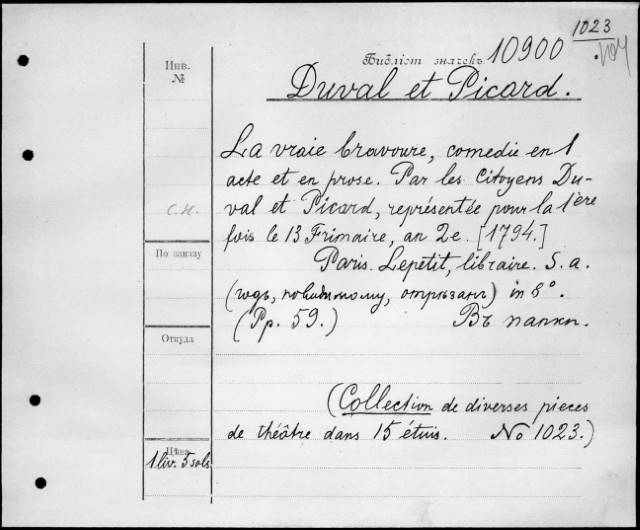 1023
Библіот. значекъ 10900
104
Инв.
№
Duval et Picard.
La vraie bravoure, comedie en 1
acte et en prose. Par les citoyens Du-
val et Picard, représentée pour la 1ère
fois le 13 Frimaire, an 2e. [1794.]
Paris. Lepetit, libraire. S. a.
(годъ, повидимому, отрѣзанъ) in 8°.
(Pp. 59.) Въ папки.
С.Н.
По заказу
Откуда
(Collection de diverses pieces
de théâtre dans 15 étuis. No 1023.)
Цѣна
1 liv. 5 sols